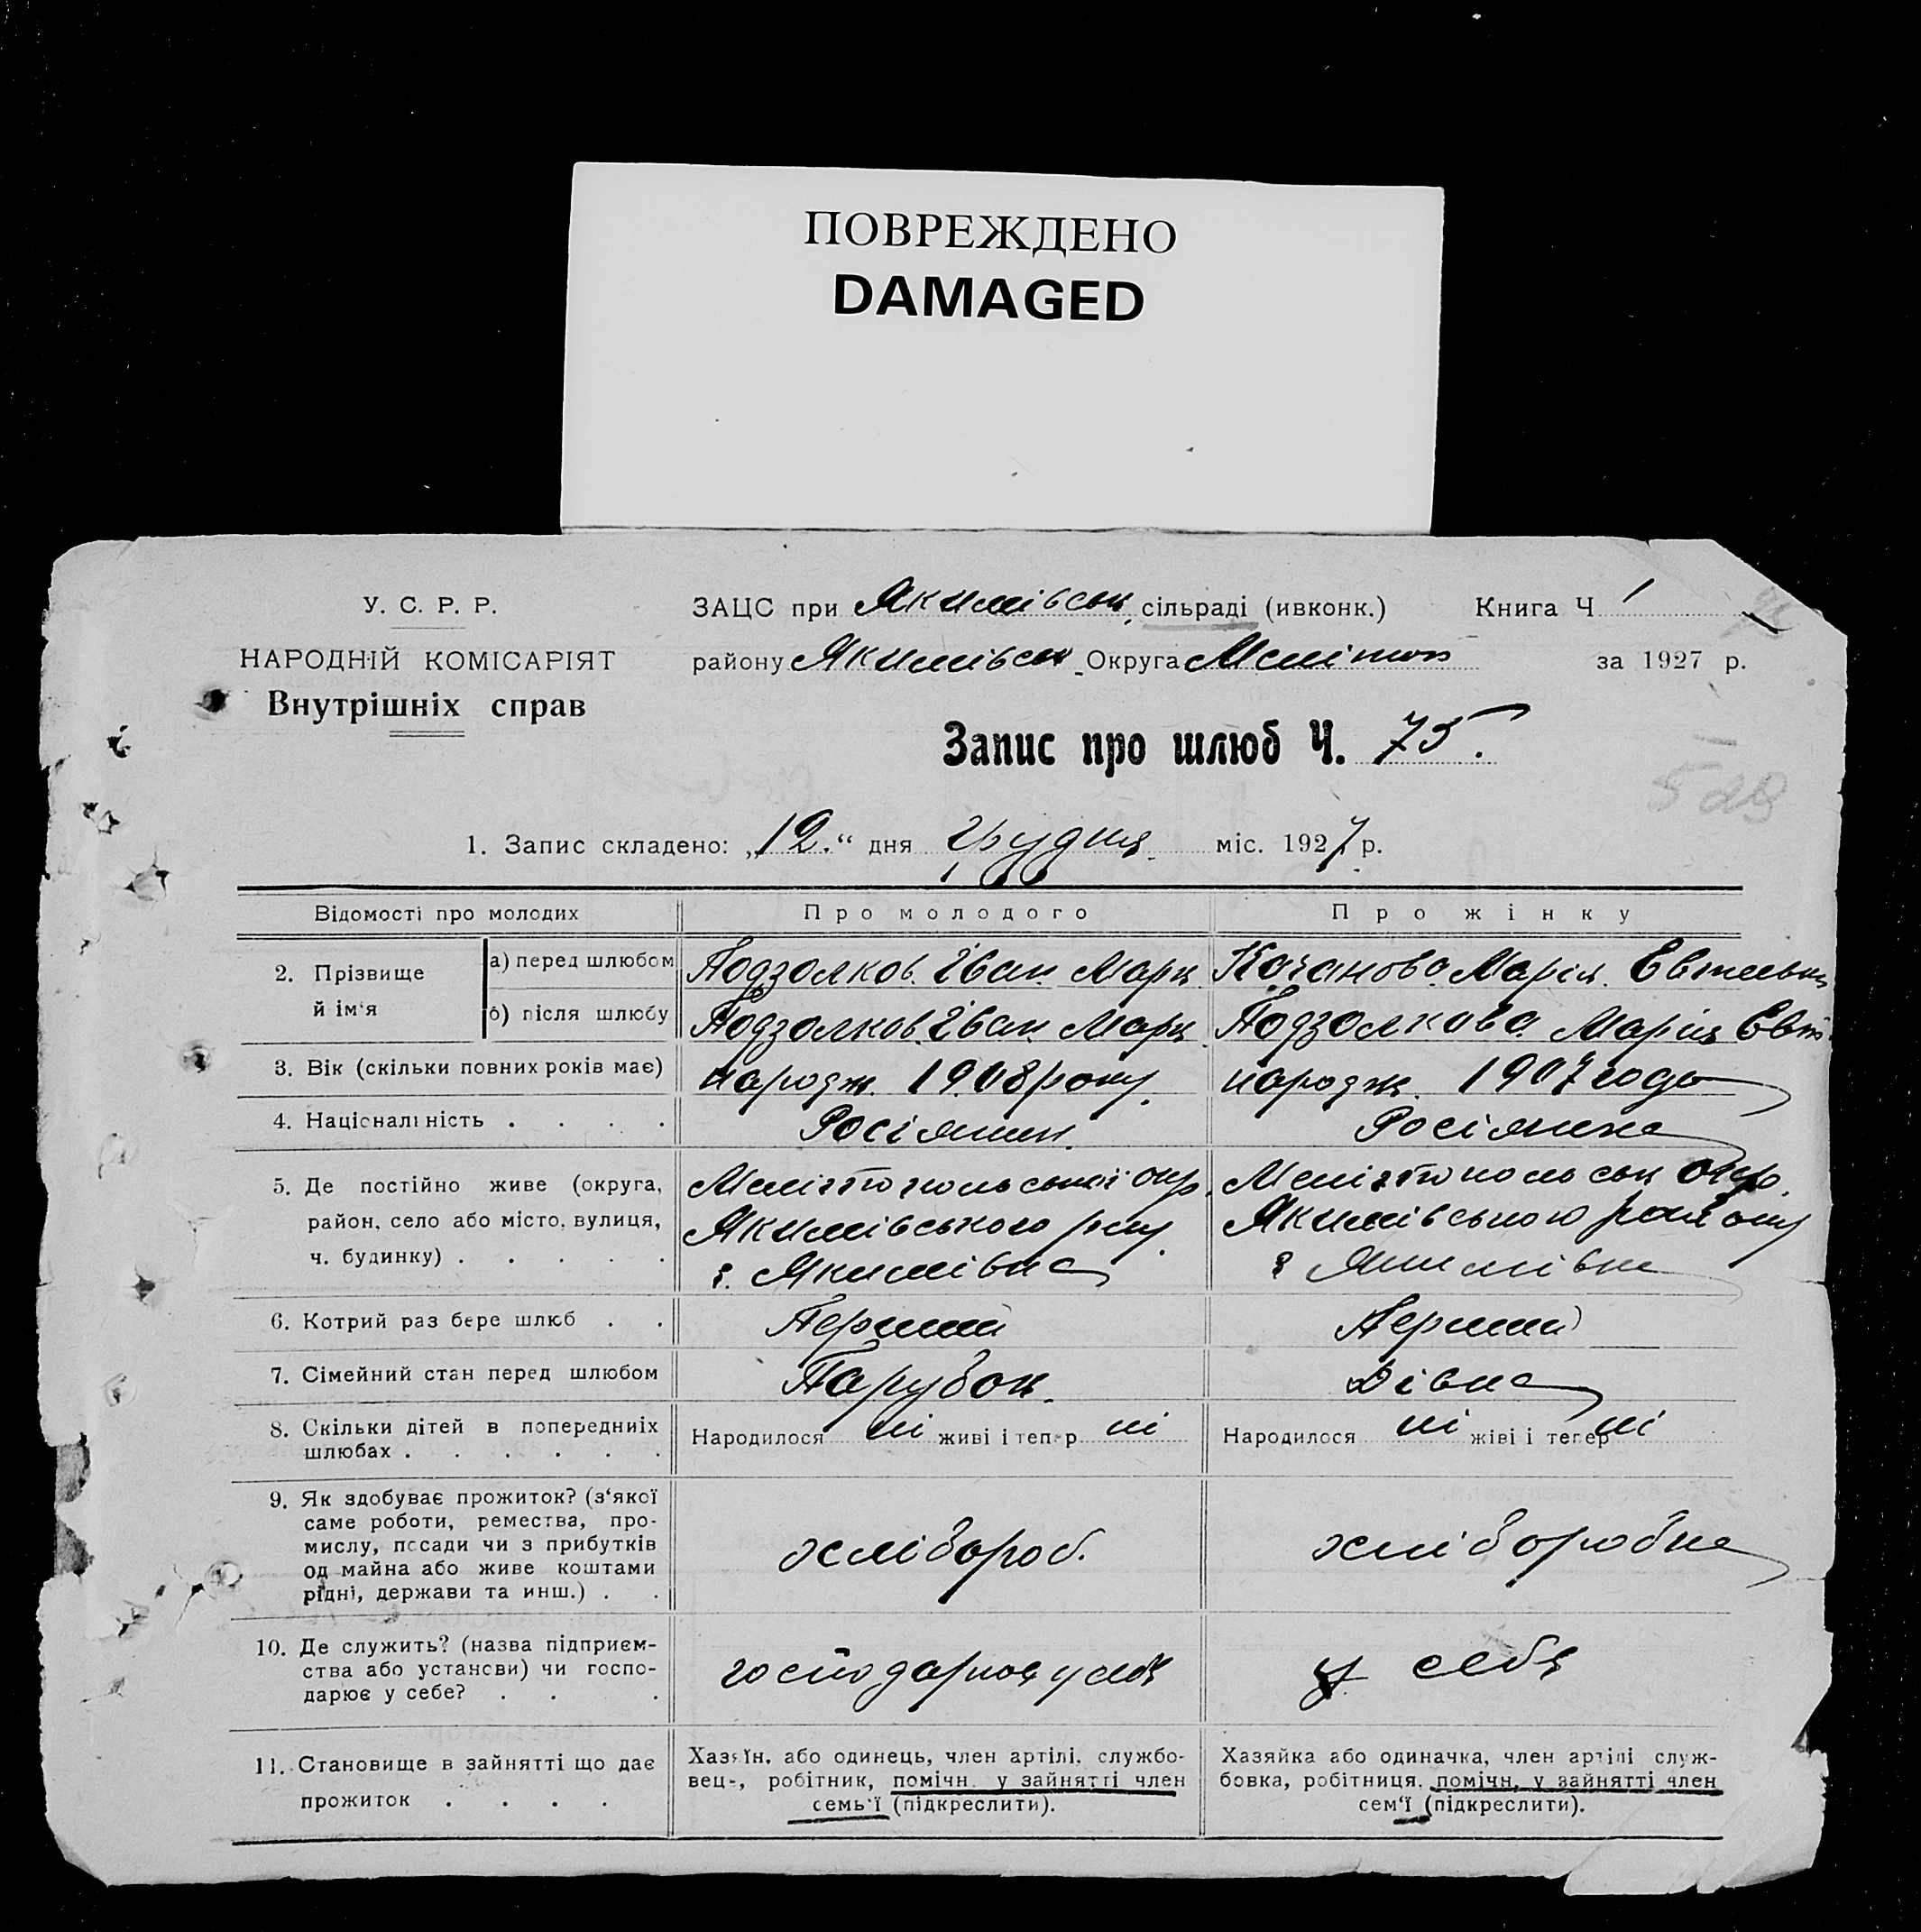 ПОВРЕЖДЕНО
DAMAGED
У. С. Р. Р.
НАРОДНІЙ КОМІСАРІЯТ
Внутрішніх справ
ЗАЦС при Якимівськ. сільраді (ивконк.) Книга Ч 1
району Якимівськ Округа Меліт за 1927 р.
Запис про шлюб Ч. 75.
1. Запис складено: „12.“ дня грудня міс. 1927 р.
Відомості про молодих
Про молодого
Про жінку
2. Прізвище й ім‘я
а) перед шлюбом
Подзолков Іван Марк.
Казанова Марія
б) після шлюбу
Подзолков Іван Марк.
Подзолкова Марія Евт
3. Вік (скільки повних років має)
народж. 1908 року.
народж. 1907 году
4. Національність . . . .
Росіянин
Росіянка
5. Де постійно живе (округа,
район, село або місто, вулиця,
ч. будинку) . . . . .
Мелітопольської окр.
Якимівського р-ну
с. Якимівка
Мелітопольськ окр.
Якимівського району
с Якимівка
6. Котрий раз бере шлюб . .
Перший
Перший
7. Сімейний стан перед шлюбом
Парубок
Дівка
8. Скільки дітей в попередниіх
шлюбах . . . . . .
Народилося ні живі і тепер ні
Народилося ні жіві і тепер ні
9. Як здобуває прожиток? (з‘якої
саме роботи, ремества, про-
мислу, посади чи з прибутків
од майна або живе коштами
рідні, держави та инш.) . .
хлібороб.
хліборобка
10. Де служить? (назва підприєм-
ства або установи) чи госпо-
дарює у себе? . . .
господарює у себя
у себя
11. Становище в зайнятті що дає
прожиток . . . .
Хазяїн, або одинець, член артілі, службо-
вець, робітник, помічн. у зайнятті член
семь‘ї (підкреслити).
Хазяйка або одиначка, член артілі служ-
бовка, робітниця, помічн. у зайнятті член
сем‘ї (підкреслити).